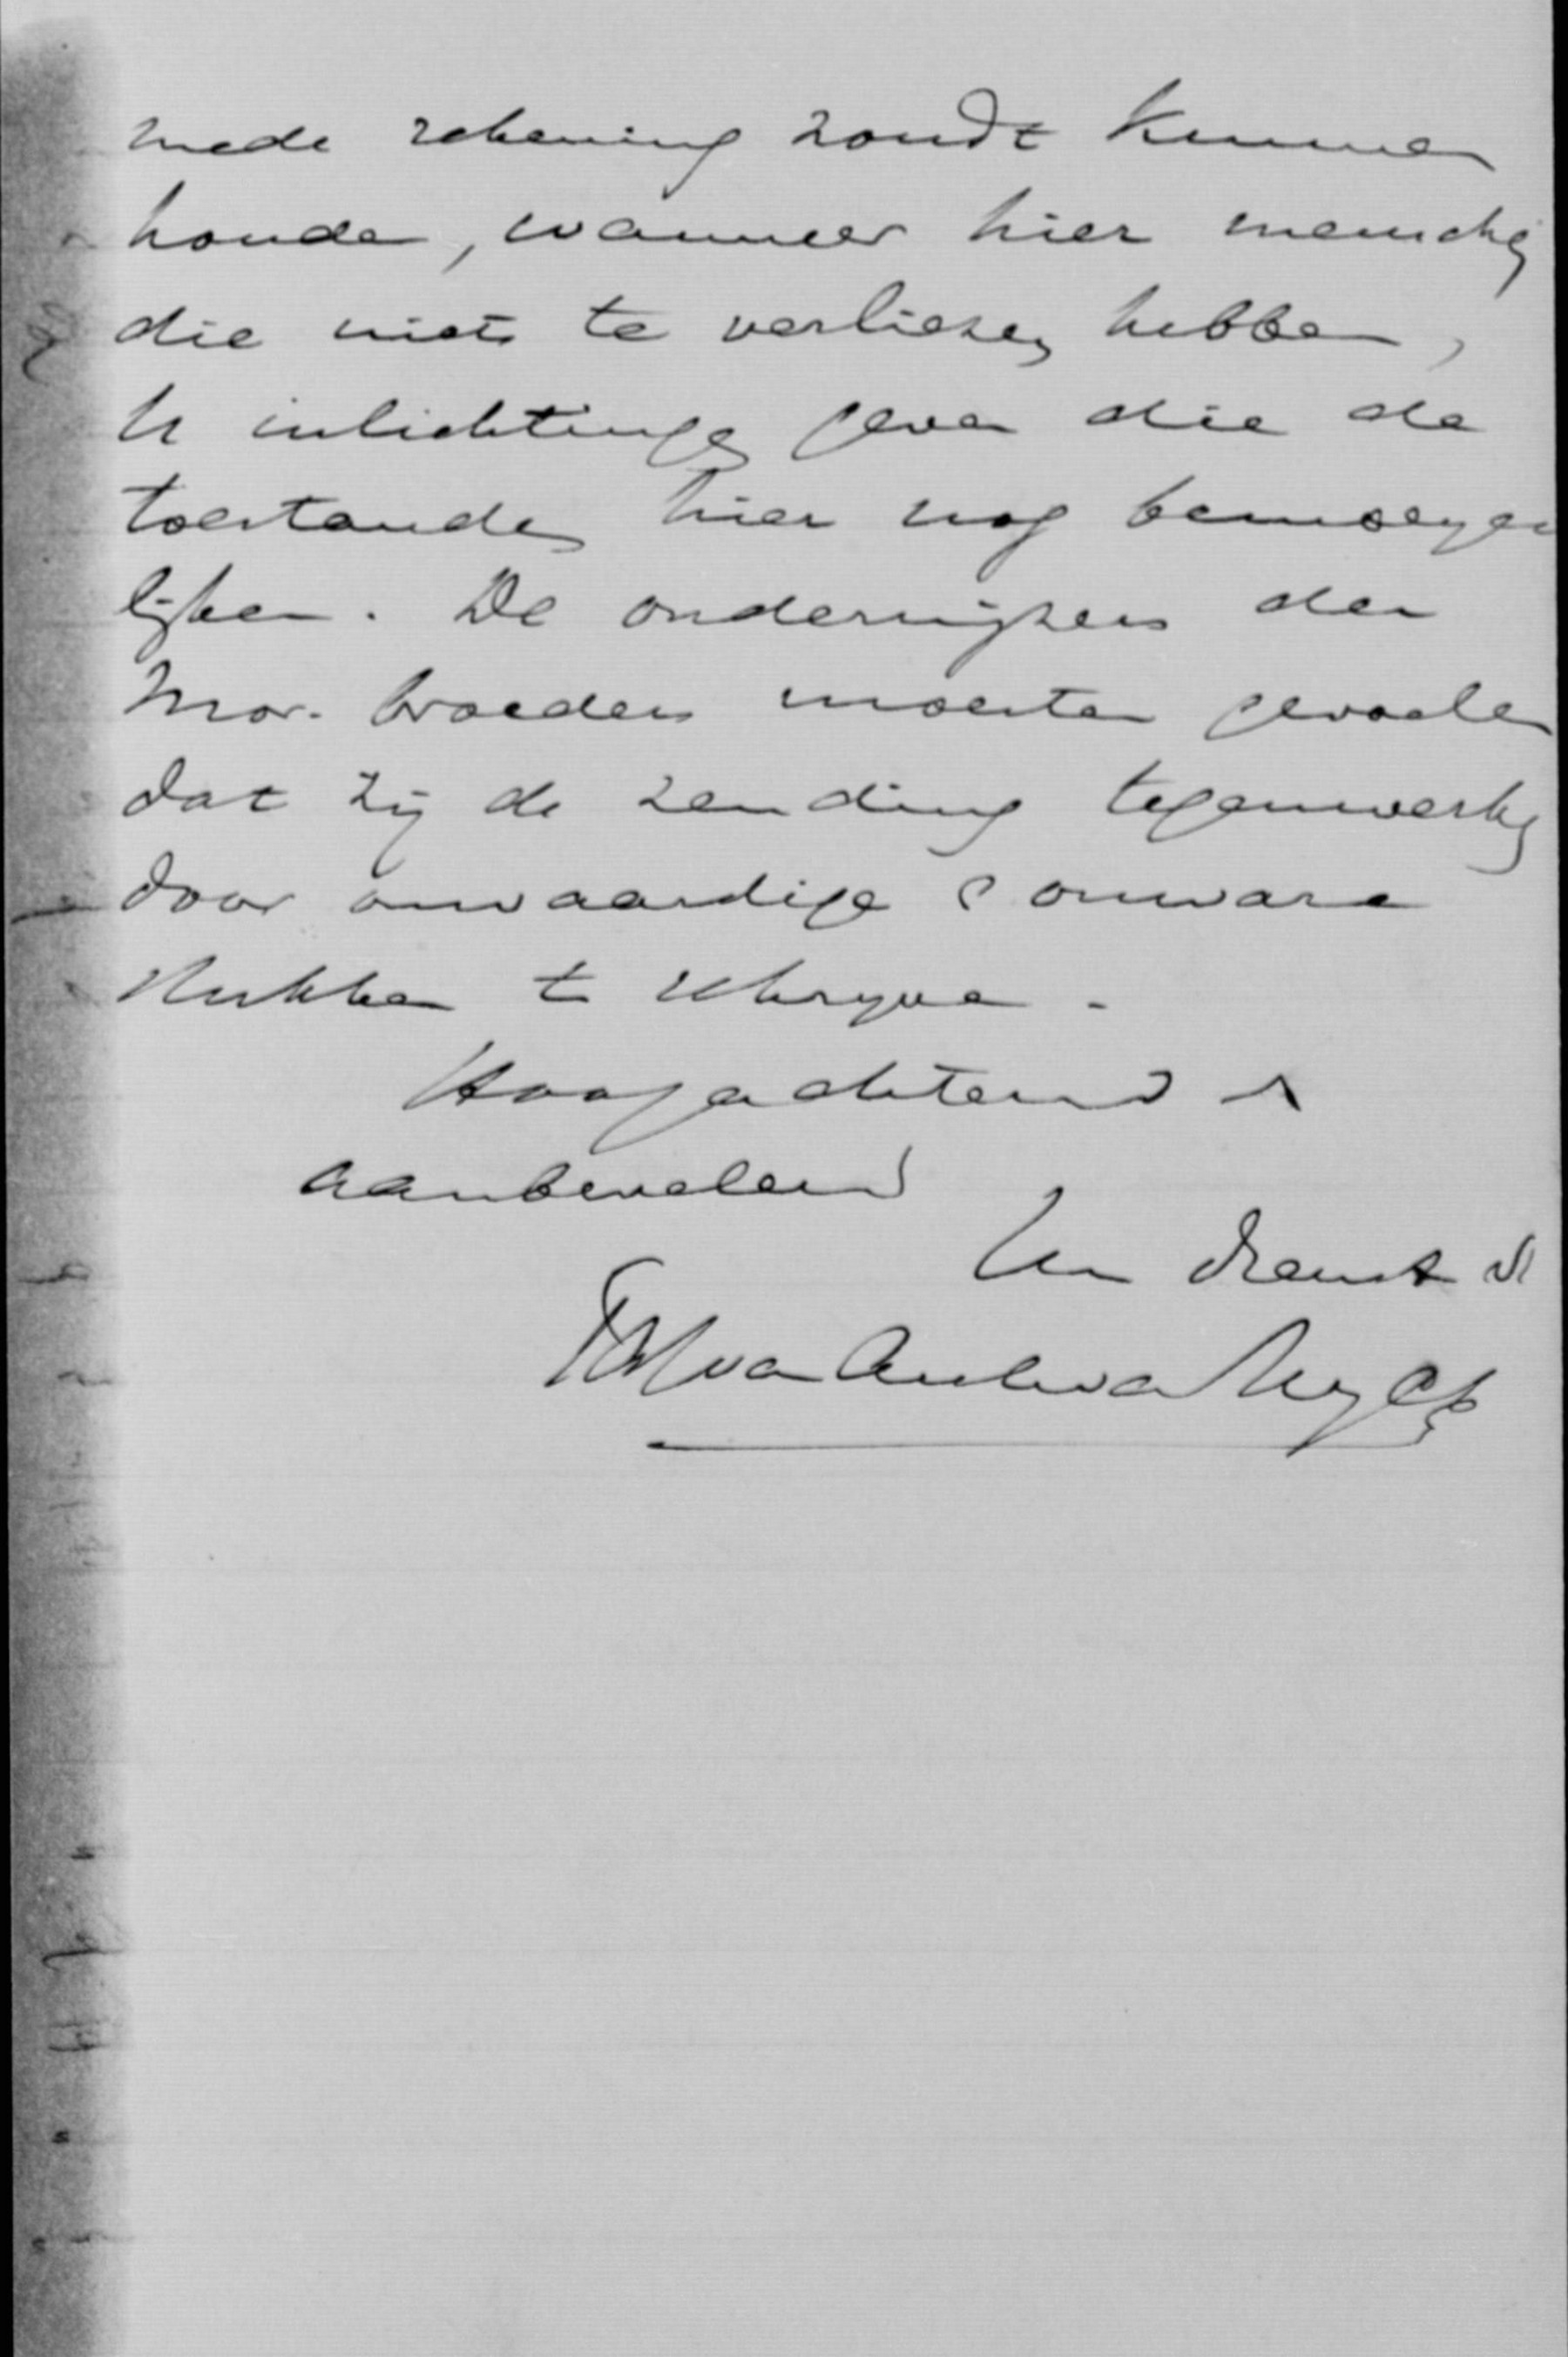 mede rekening zoudt kunnen
houden, wanneer hier menschen
die niets te verliezen hebben,
U inlichtingen geven die de
toestanden hier nog bemoeye
lijken. De onderwijzers der
Mor. broeders moesten gevoelen
dat zij de zending tegenwerken
door onwaardige & onware
stukken te schryven.
Hoogachtend &
aanbevelend
Uw dienst